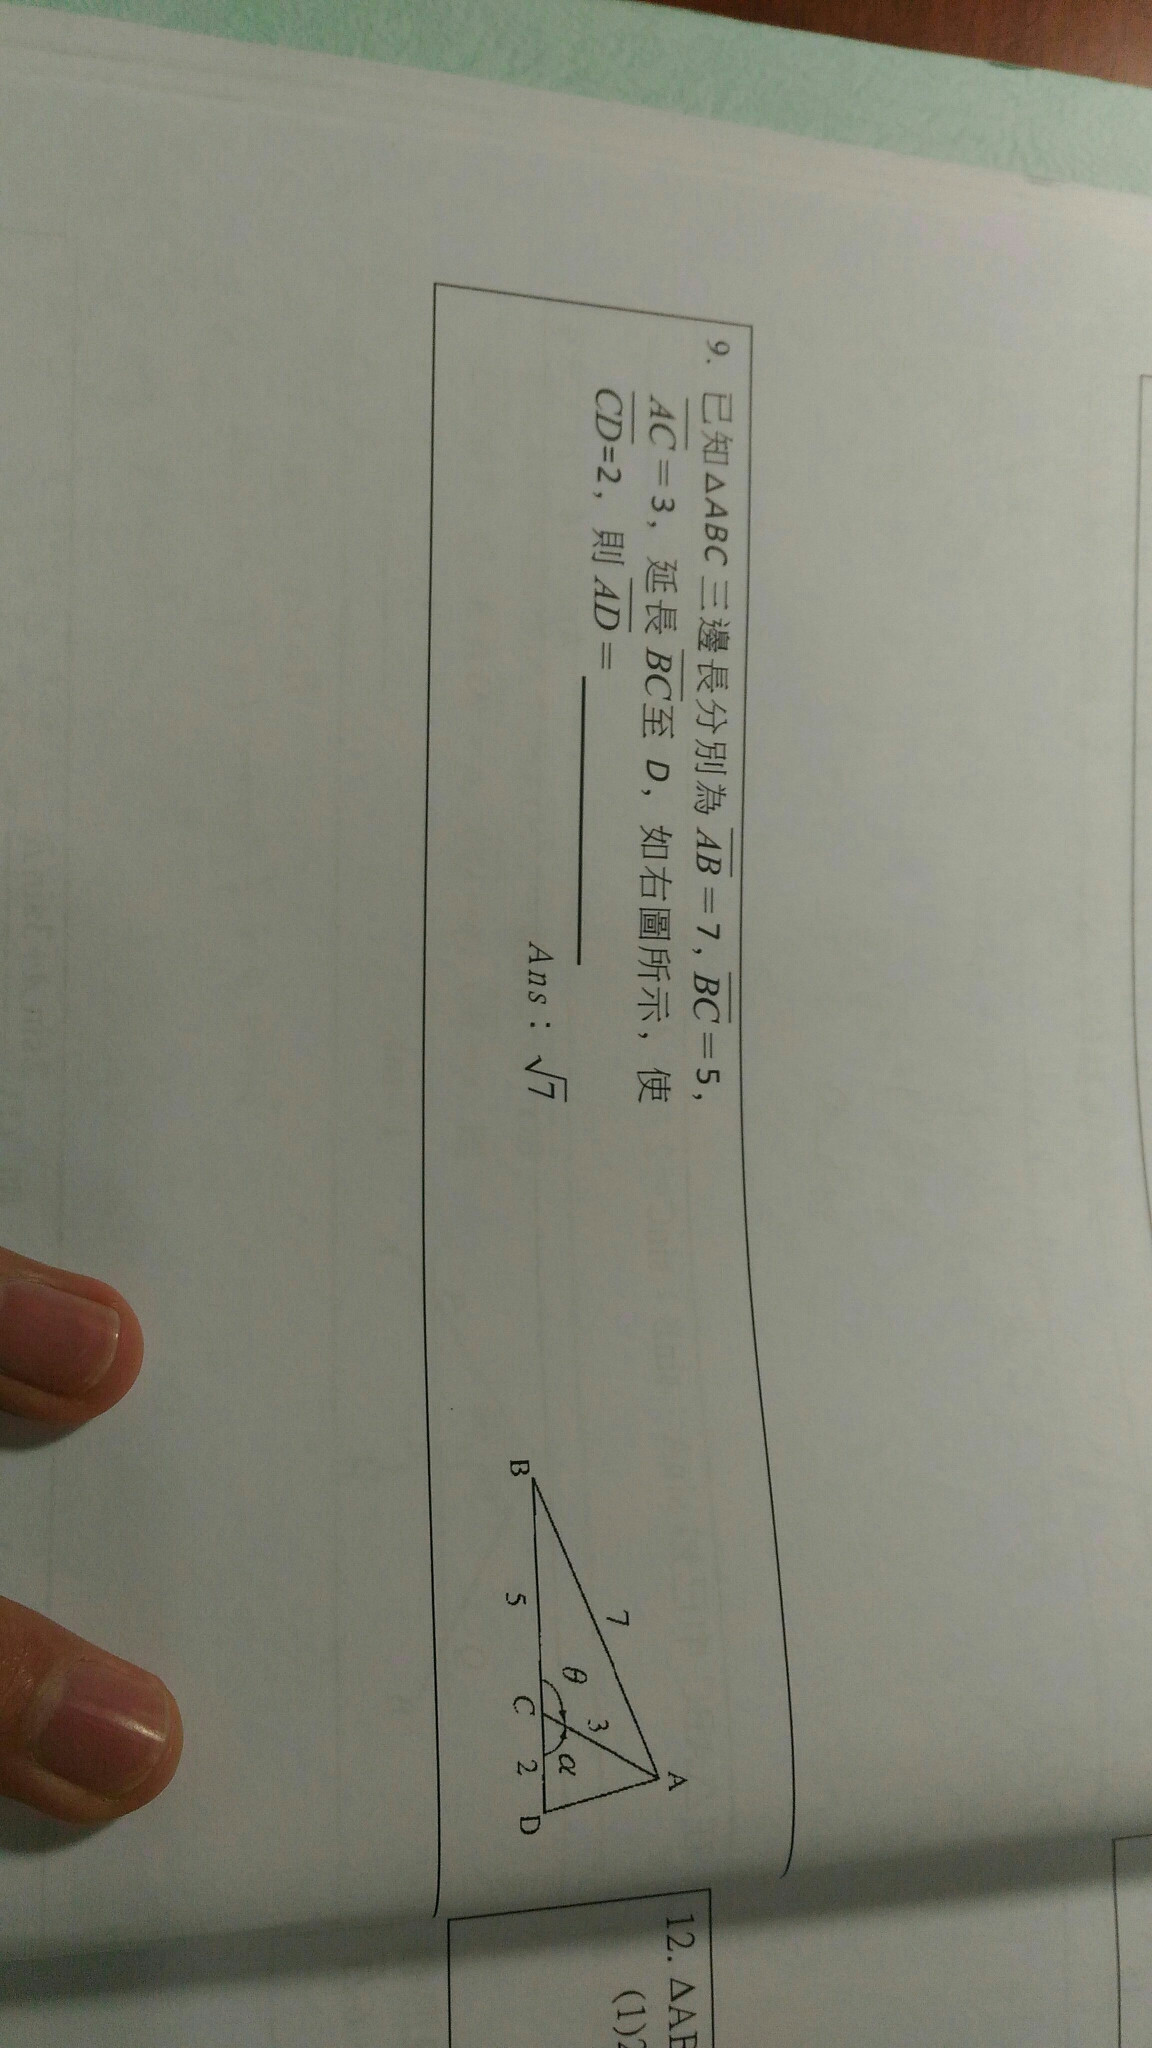 9. 已知△ABC三邊長分別為 AB = 7, BC = 5,
AC = 3, 延長 BC至 D, 如右圖所示, 使
CD=2, 則 AD = ________
Ans：√7
A
7
3
θ
α
B
5
C
2
D
12. △AB
(1)2